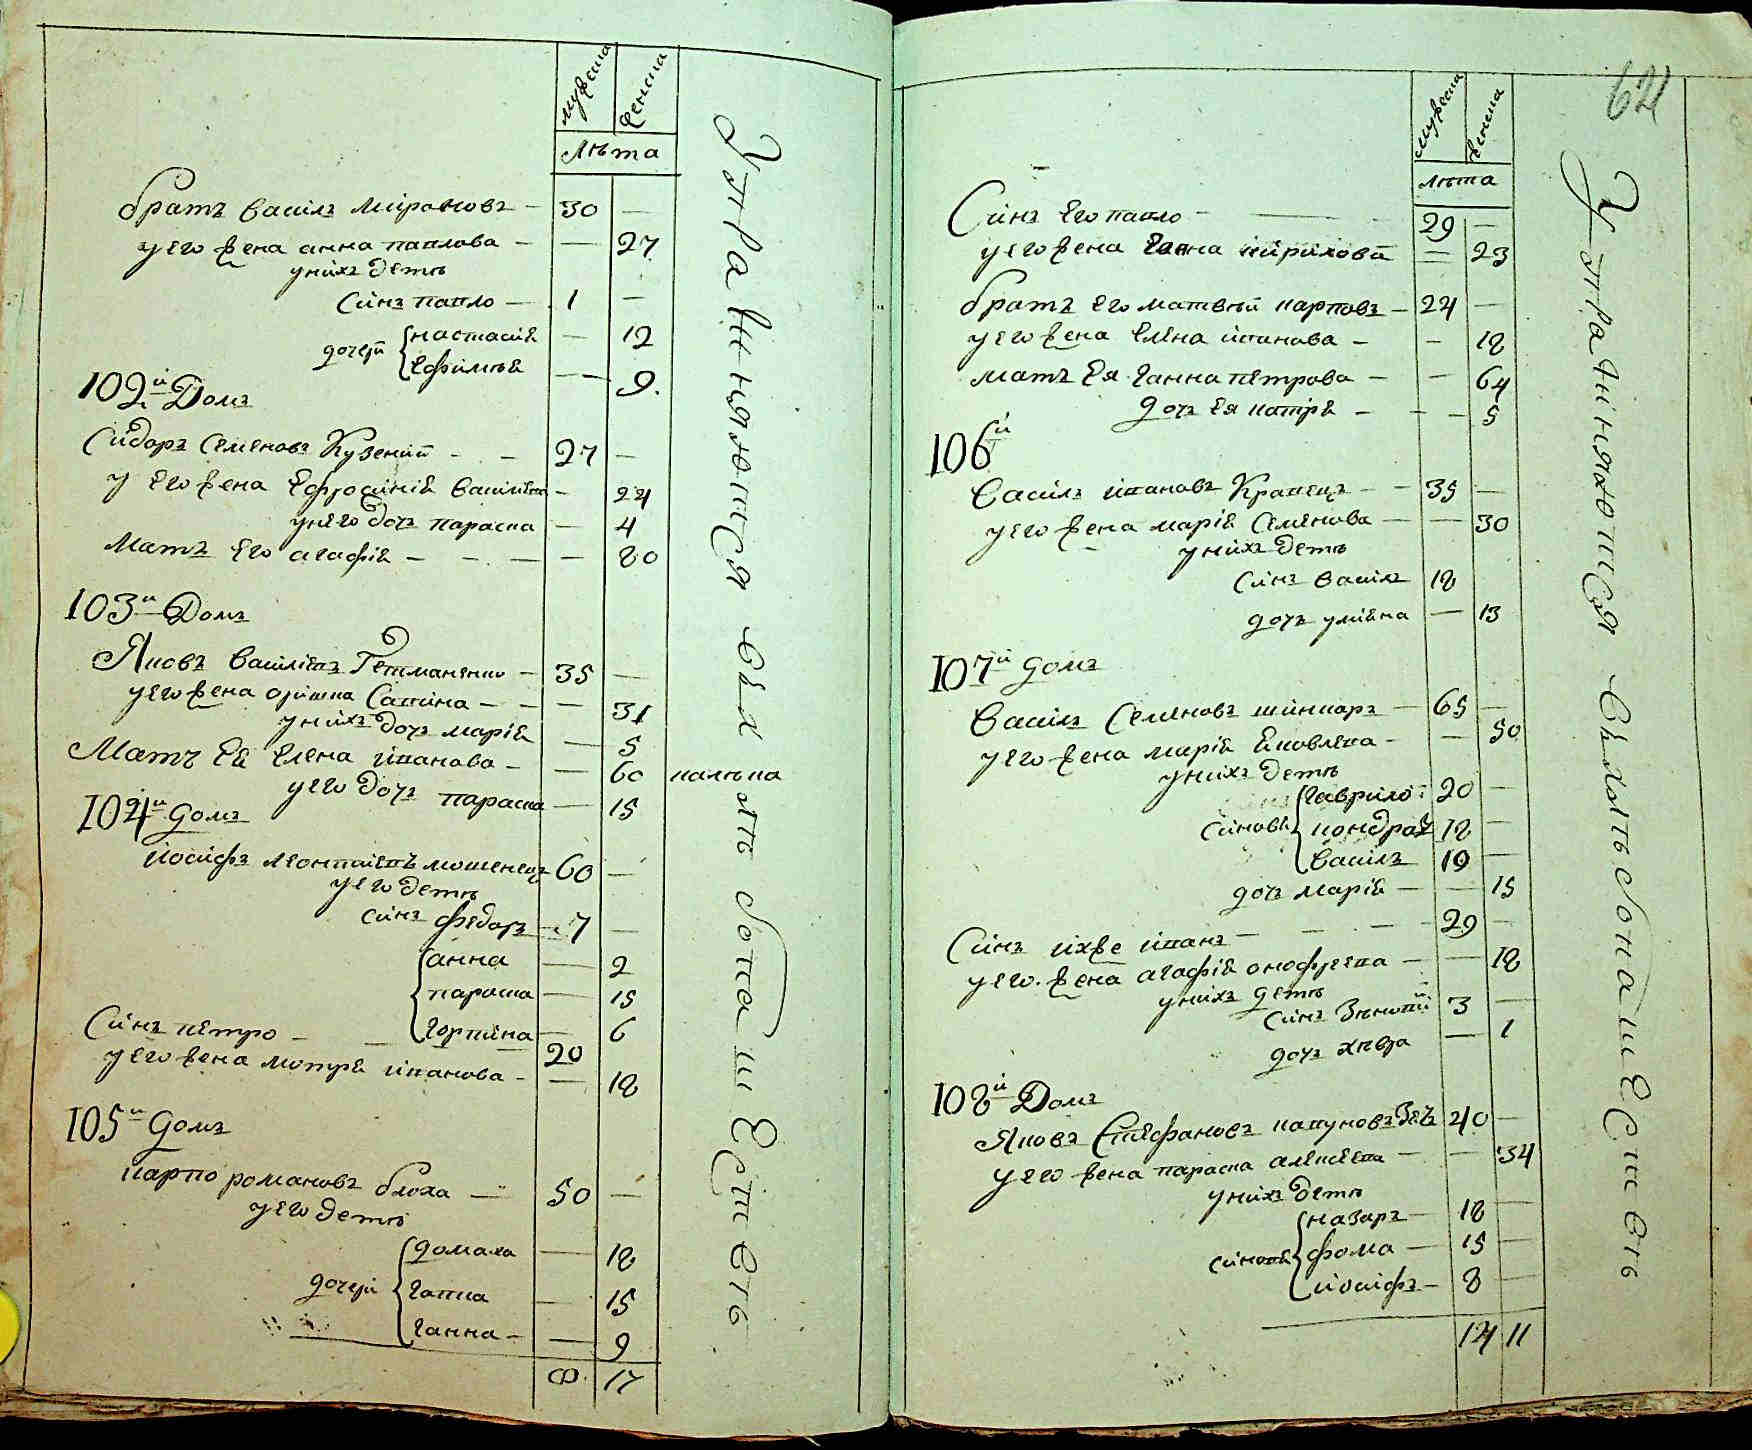 мужеска женска
Лѣта
братъ василь мироновъ - 30 —
у его жена анна павлова - — 27
у нихъ дети
синъ павло — 1 —
дочери настасия — 12
Ефимия — 9
102й Домъ
Сидоръ Семеновъ Кузений - - 27 —
у Его жена Ефросиния василева — 24
у него доч параска — 4
Мать Его агафия - - - — 80
103й Домъ
Яковъ василевъ Гетманенко — 35 —
у его жена оришка Савина - - — 31
у нихъ доч мария — 5
Мать Ей Елена иванова - — 60
калѣка
у его доч параска — 15
104й домъ
иосифъ леонтиевъ мошенецъ 60 —
у его дети
синъ федоръ 7 —
анна — 2
параска — 15
горпина — 6
Синъ петро - - — 20
у его жена мотря иванова - — 18
105й домъ
карпо романовъ блоха — 50 —
у его дети
дочери домаха — 18
гапка — 15
ганна - — 9
8 17
Упражняются въ хлѣбопашестве
62
мужеска женска
лѣта
Синъ Его павло - 29 —
у его жена Ганна кирилова — 23
братъ Его матвѣй карповъ — 24 —
у его жена Елена иванова - - 18
мать Ея Ганна петрова - — 64
доч Ея катря - - - 5
106й
василь ивановъ Кравецъ - - 35 —
у его жена мария Семенова — — 30
у нихъ дети
синъ василь 18
доч улияна — 13
107й домъ
василь Семеновъ шинкаръ — 65 —
у его жена мария Яковлева - — 50
у нихъ дети
синовя гаврило 20 —
кондрат 18 —
василь 19 —
доч мария — — 15
Синъ ихже иванъ - - - 29 -
у его жена агафия онофреева - — 18
у нихъ дети
синъ Зѣновий 3 —
доч хивря — 1
108й Домъ
Яковъ Стефановъ капуновъ 40 —
у его жена параска алексеева - — 34
у нихъ дети
синовя назаръ — 18 —
фома — 15 —
иосифъ — 8 —
14 11
Упражняются въ хлѣбопашестве